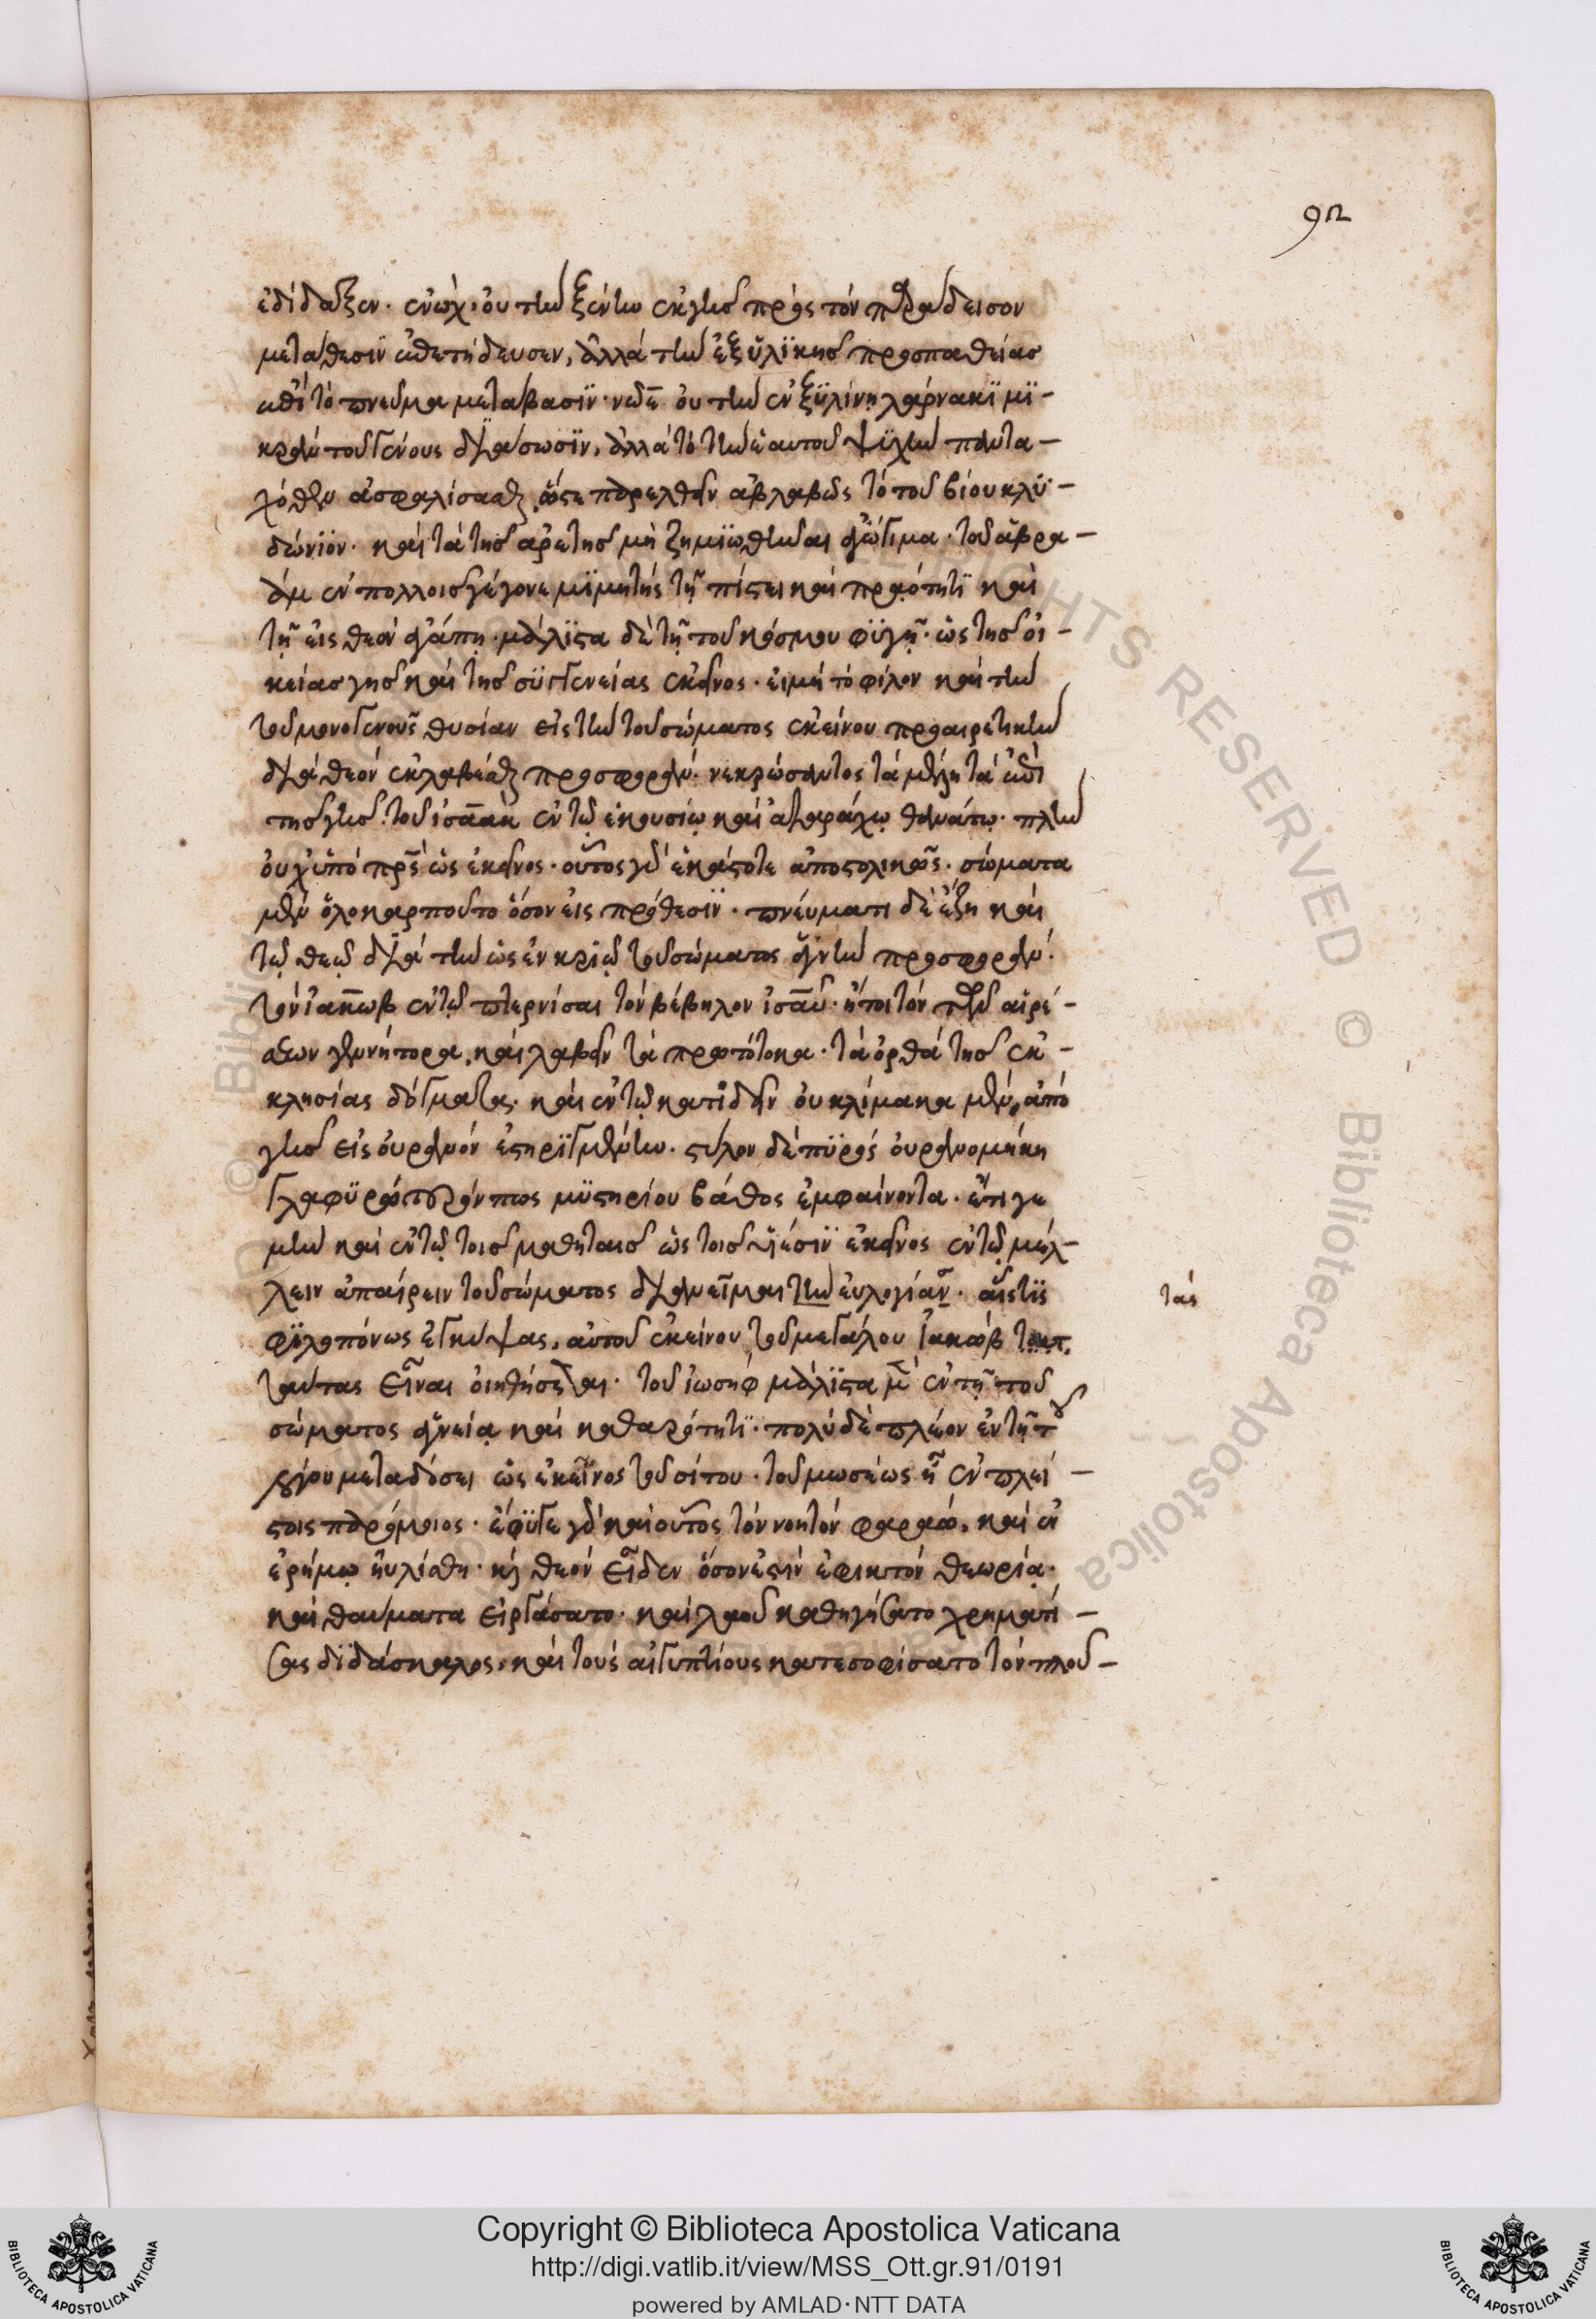 92
ἐδίδαξεν. ἐνώχ, οὐ τὴν ξένην ἐκ γῆς πρὸς τὸν παράδεισον
μετάθεσιν ἐπετήδευσεν, ἀλλὰ τὴν ἐξ ὑλικῆς προσπαθείας
ἐπὶ τὸ πνεῦμα μετάβασιν. νῶε οὐ τὴν ἐν ξυλίνῃ λάρνακι μι-
κρὰν τοῦ γένους διάσωσιν, ἀλλὰ τὸ τὴν ἑαυτοῦ ψυχὴν παντα-
χόθεν ἀσφαλίσασθαι, ὥστε παρελθεῖν ἀβλαβῶς τὸ τοῦ βίου κλυ-
δώνιον. καὶ τὰ τῆς ἀρετῆς μὴ ζημιωθῆναι ἀγώγιμα. τοῦ ἀβρα-
ὰμ ἐν πολλοῖς γέγονε μιμητὴς τῇ πίστει καὶ πραότητι καὶ
τῇ εἰς θεὸν ἀγάπῃ. μάλιστα δὲ τῇ τοῦ κόσμου φυγῇ. ὡς τῆς οἰ-
κείας γῆς καὶ τῆς συγγενείας ἐκεῖνος. εἰ μὴ τὸ φίλον καὶ τὴν
τοῦ μονογενοῦς θυσίαν εἰς τὴν τοῦ σώματος ἐκείνου προαιρετικὴν
διὰ θεὸν ἐκλαβέσθαι προσφοράν. νεκρώσαντος τὰ μέλη τὰ ἐπὶ
τῆς γῆς. τοῦ ἰσαὰκ ἐν τῷ ἑκουσίῳ καὶ ἀταράχῳ θανάτῳ. πλὴν
οὐχ ὑπὸ πρς ὡς ἐκεῖνος. οὗτος γὰρ ἑκάστοτε ἀποστολικῶς. σώματα
μὲν ὁλοκαρποῦτο ὅσον εἰς πρόθεσιν. πνεύματι δὲ ἔζη καὶ
τῷ θεῷ διὰ τὴν ὡς ἐν κριῷ τοῦ σώματος ἁγνὴν προσφοράν.
τὸν ἰακὼβ ἐν τῷ πτερνίσαι τὸν βέβηλον ἰσαῦ. ἤτοι τὸν τῶν αἱρέ-
σεων γεννήτορα, καὶ λαβεῖν τὰ πρωτότοκα. τὰ ὀρθὰ τῆς ἐκ-
κλησίας δόγματα. καὶ ἐν τῷ κατιδεῖν οὐ κλίμακα μὲν, ἀπὸ
γῆς εἰς οὐρανὸν ἐστηριγμένην. στύλον δὲ πυρὸς οὐρανομήκη
μὴν καὶ ἐν τῷ τοῖς μαθηταῖς ὡς τοῖς υἱέσιν ἐκεῖνος ἐν τῷ μέλ-
λειν ἀπαίρειν τοῦ σώματος διανεῖμαι τὴν εὐλογίαν. αἷς τις
τὰς
φιλοπόνως ἐγκύψας, αὐτοῦ ἐκείνου τοῦ μεγάλου ἰακὼβ
ταύτας εἶναι οἰηθήσεται. τοῦ ἰωσὴφ μάλιστα μὲν ἐν τῇ τοῦ
σώματος ἁγνείᾳ καὶ καθαρότητι. πολὺ δὲ πλέον ἐν τῇ τοῦ
λόγου μεταδόσει ὡς ἐκεῖνος τοῦ σίτου. τοῦ μωσέως ἦν ἐν πλεί-
στοις παρόμοιος. ἔφυγε γὰρ καὶ οὗτος τὸν νοητὸν φαραώ, καὶ ἐν
ἐρήμῳ ηὐλίσθη. καὶ θεὸν εἶδεν ὅσον ἐστὶν ἐφικτὸν θεωρίᾳ.
καὶ θαύματα εἰργάσατο. καὶ λαοῦ καθηγήσατο χρηματί-
σας διδάσκαλος, καὶ τοὺς αἰγυπτίους κατεσοφίσατο τὸν πλοῦ-
Copyright © Biblioteca Apostolica Vaticana
http://digi.vatlib.it/view/MSS_Ott.gr.91/0191
powered by AMLAD·NTT DATA